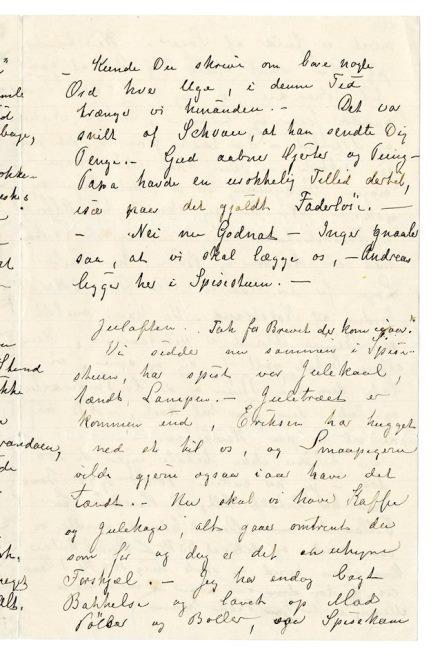 – Kunde Du skrive om bare nogle
Ord hver Uge, i denne Tid
trænger vi hinanden. – Det var
snilt af Schou, at han sendte Dig
Penge. – Gud aabner Hjerter og Pung –
Papa havde en urokkelig Tillid dertil,
især paa det gjaldt Faderløse. –
– Nei nu Godnat – Inger gnaaler
saa, at vi skal lægge os, – Andreas
ligger her i Spisestuen. –
Juleaften. Tak for Brevet der kom igaar.
Vi sidder nu sammen i Spise-
stuen, har spist vor Julekaal,
tændt Lampen. – Juletræet er
kommen ind, Eriksen har hugget
ned et til os, og Smaapigerne
vilde gjerne ogsaa iaar have det
tændt. – Nu skal vi have Kaffe
og Julekage, alt gaar omtrent da
som før og dog er det en uhyre
Forskjel. – Jeg har endog bagt
Bakkelse og lavet op Mad
Pølser og Boller, Spisekam